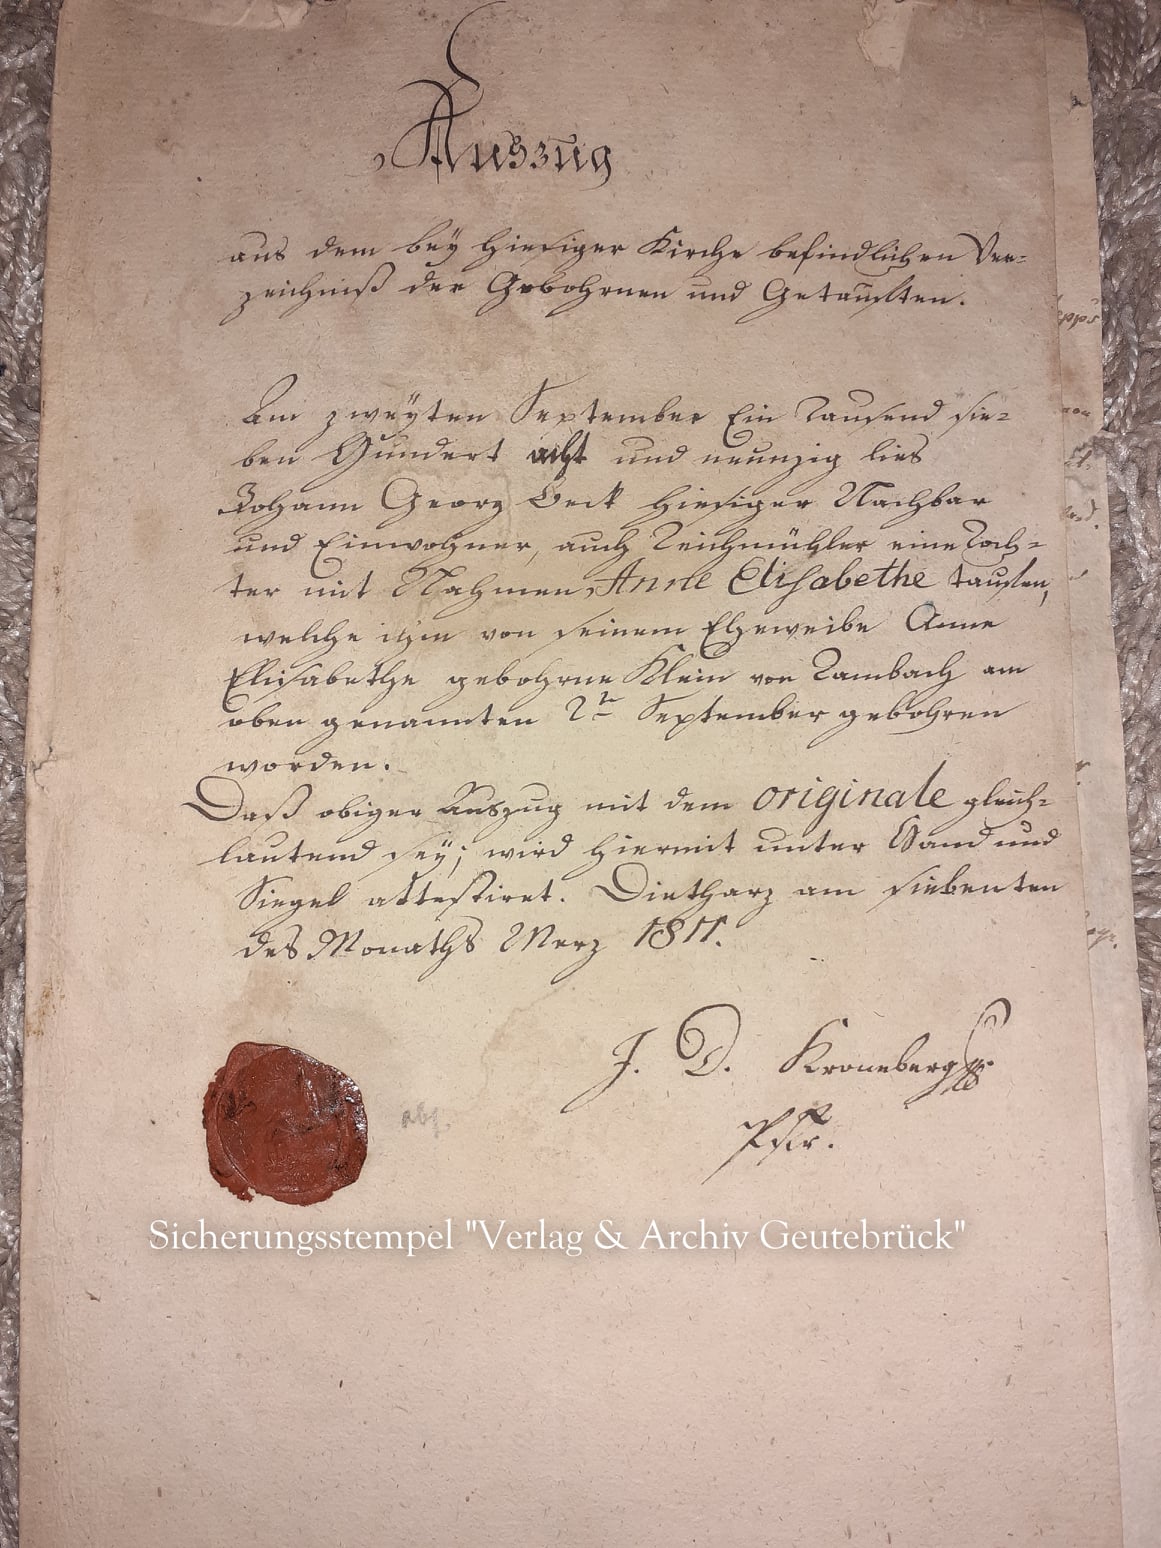 Auszug
aus dem bey hiesiger Kirche befindlichen Ver-
zeichniß der Gebohrnen und Getauften.
Am zweyten September Ein Tausend sie-
ben Hundert acht und neunzig lies
Johann Georg Beck hiesiger Nachbar
und Einwohner, auch Teichmühler eine Toch-
ter mit Nahmen Anne Elisabethe taufen,
welche ihm von seinem Eheweibe Anne
Elisabethe gebohrne Klein von Tambach am
oben genannten 2tn September gebohren
worden.
Daß obiger Auszug mit dem originale gleich-
lautend sey; wird hiermit unter Hand und
Siegel attestiret. Dietharz am siebenten
des Monaths Merz 1811.
J. D. Kroneberg
Pfr.
Sicherungsstempel "Verlag & Archiv Geutebrück"